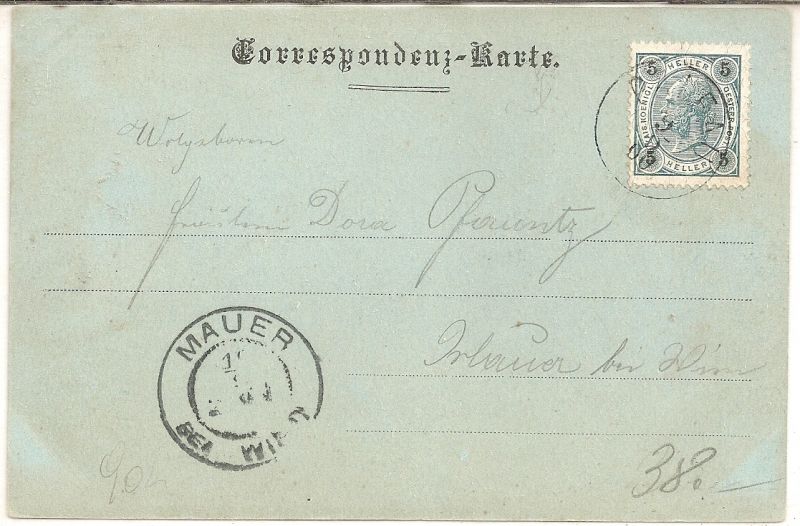 Correspondenz-Karte.
5 HELLER 5
KAIS. KOENIGL. OESTERR. POST
5 HELLER 5
Wolgeborene
Fräulein Dora
MAUER
BEI WIEN
Mauer bei Wien
38.-